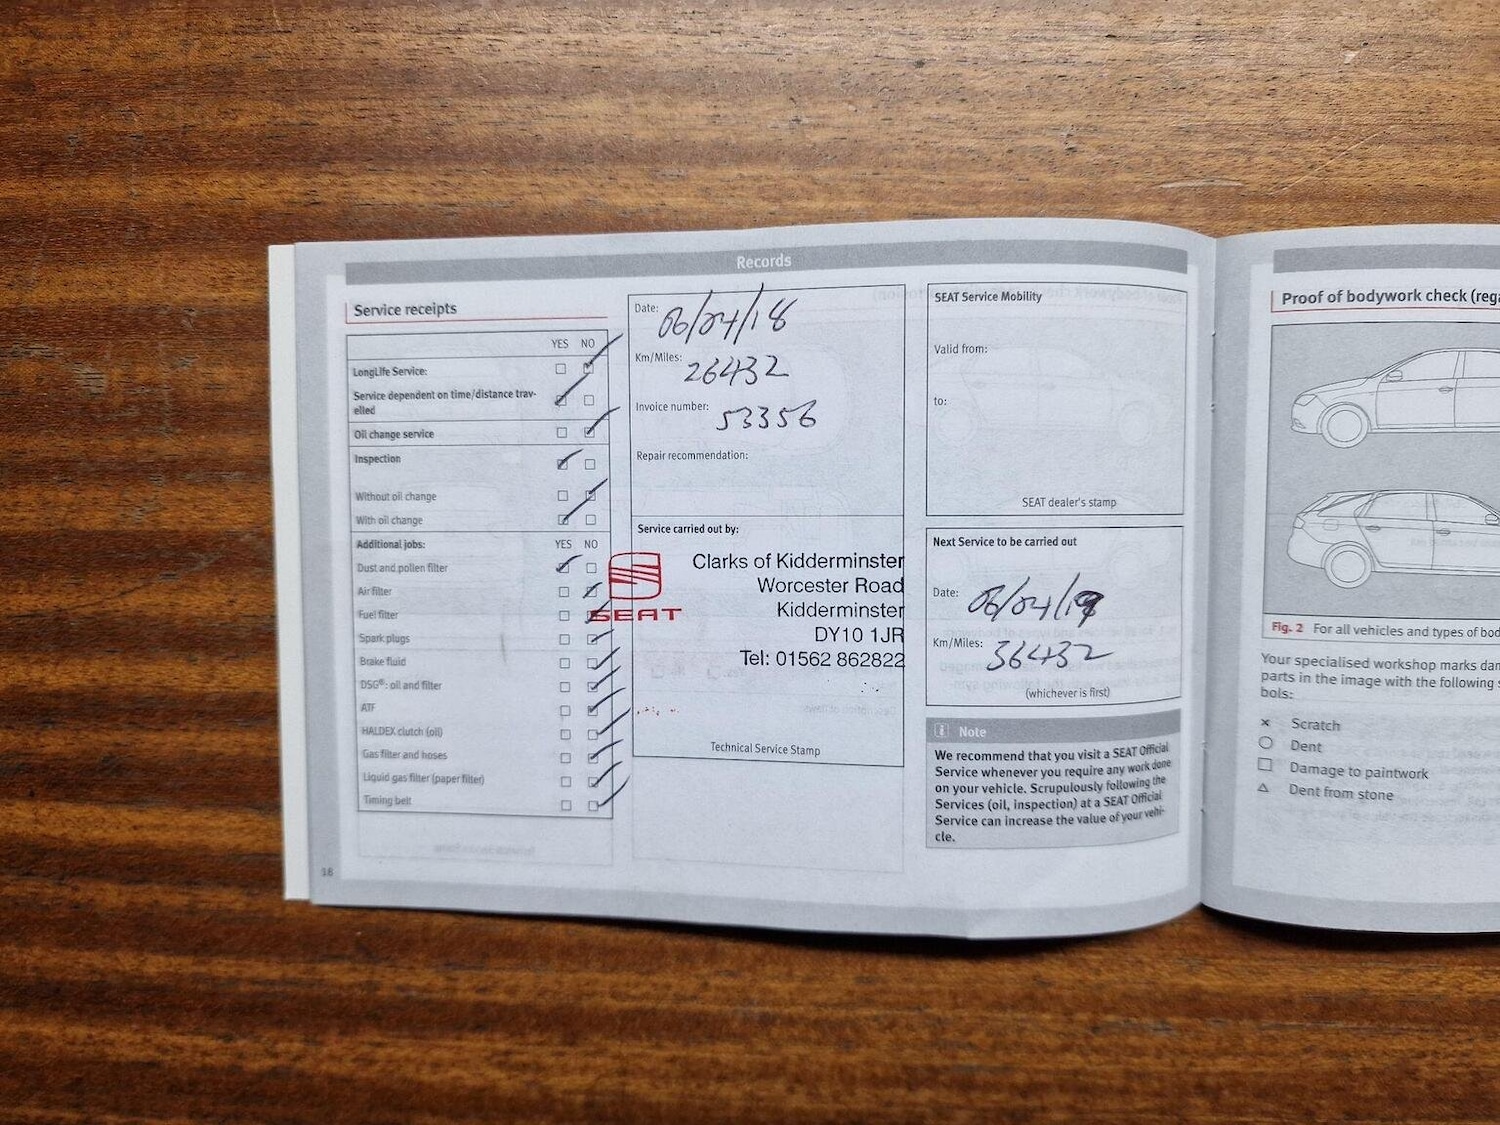 Records
Service receipts
YES NO
LongLife Service:
Service dependent on time/distance trav-
elled
Oil change service
Inspection
Without oil change
With oil change
Additional jobs: YES NO
Dust and pollen filter
Air filter
Fuel filter
Spark plugs
Brake fluid
DSG®: oil and filter
ATF
HALDEX clutch (oil)
Gas filter and hoses
Liquid gas filter (paper filter)
Timing belt
18
Date: 06/04/18
Km/Miles: 26432
Invoice number: 53356
Repair recommendation:
Service carried out by:
SEAT
Clarks of Kidderminster
Worcester Road
Kidderminster
DY10 1JR
Tel: 01562 862822
Technical Service Stamp
SEAT Service Mobility
Valid from:
to:
SEAT dealer's stamp
Next Service to be carried out
Date: 06/04/19
Km/Miles: 36432
(whichever is first)
i Note
We recommend that you visit a SEAT Official
Service whenever you require any work done
on your vehicle. Scrupulously following the
Services (oil, inspection) at a SEAT Official
Service can increase the value of your vehi-
cle.
Proof of bodywork check (rega
Fig. 2 For all vehicles and types of bod
Your specialised workshop marks dan
parts in the image with the following s
bols:
× Scratch
○ Dent
□ Damage to paintwork
△ Dent from stone